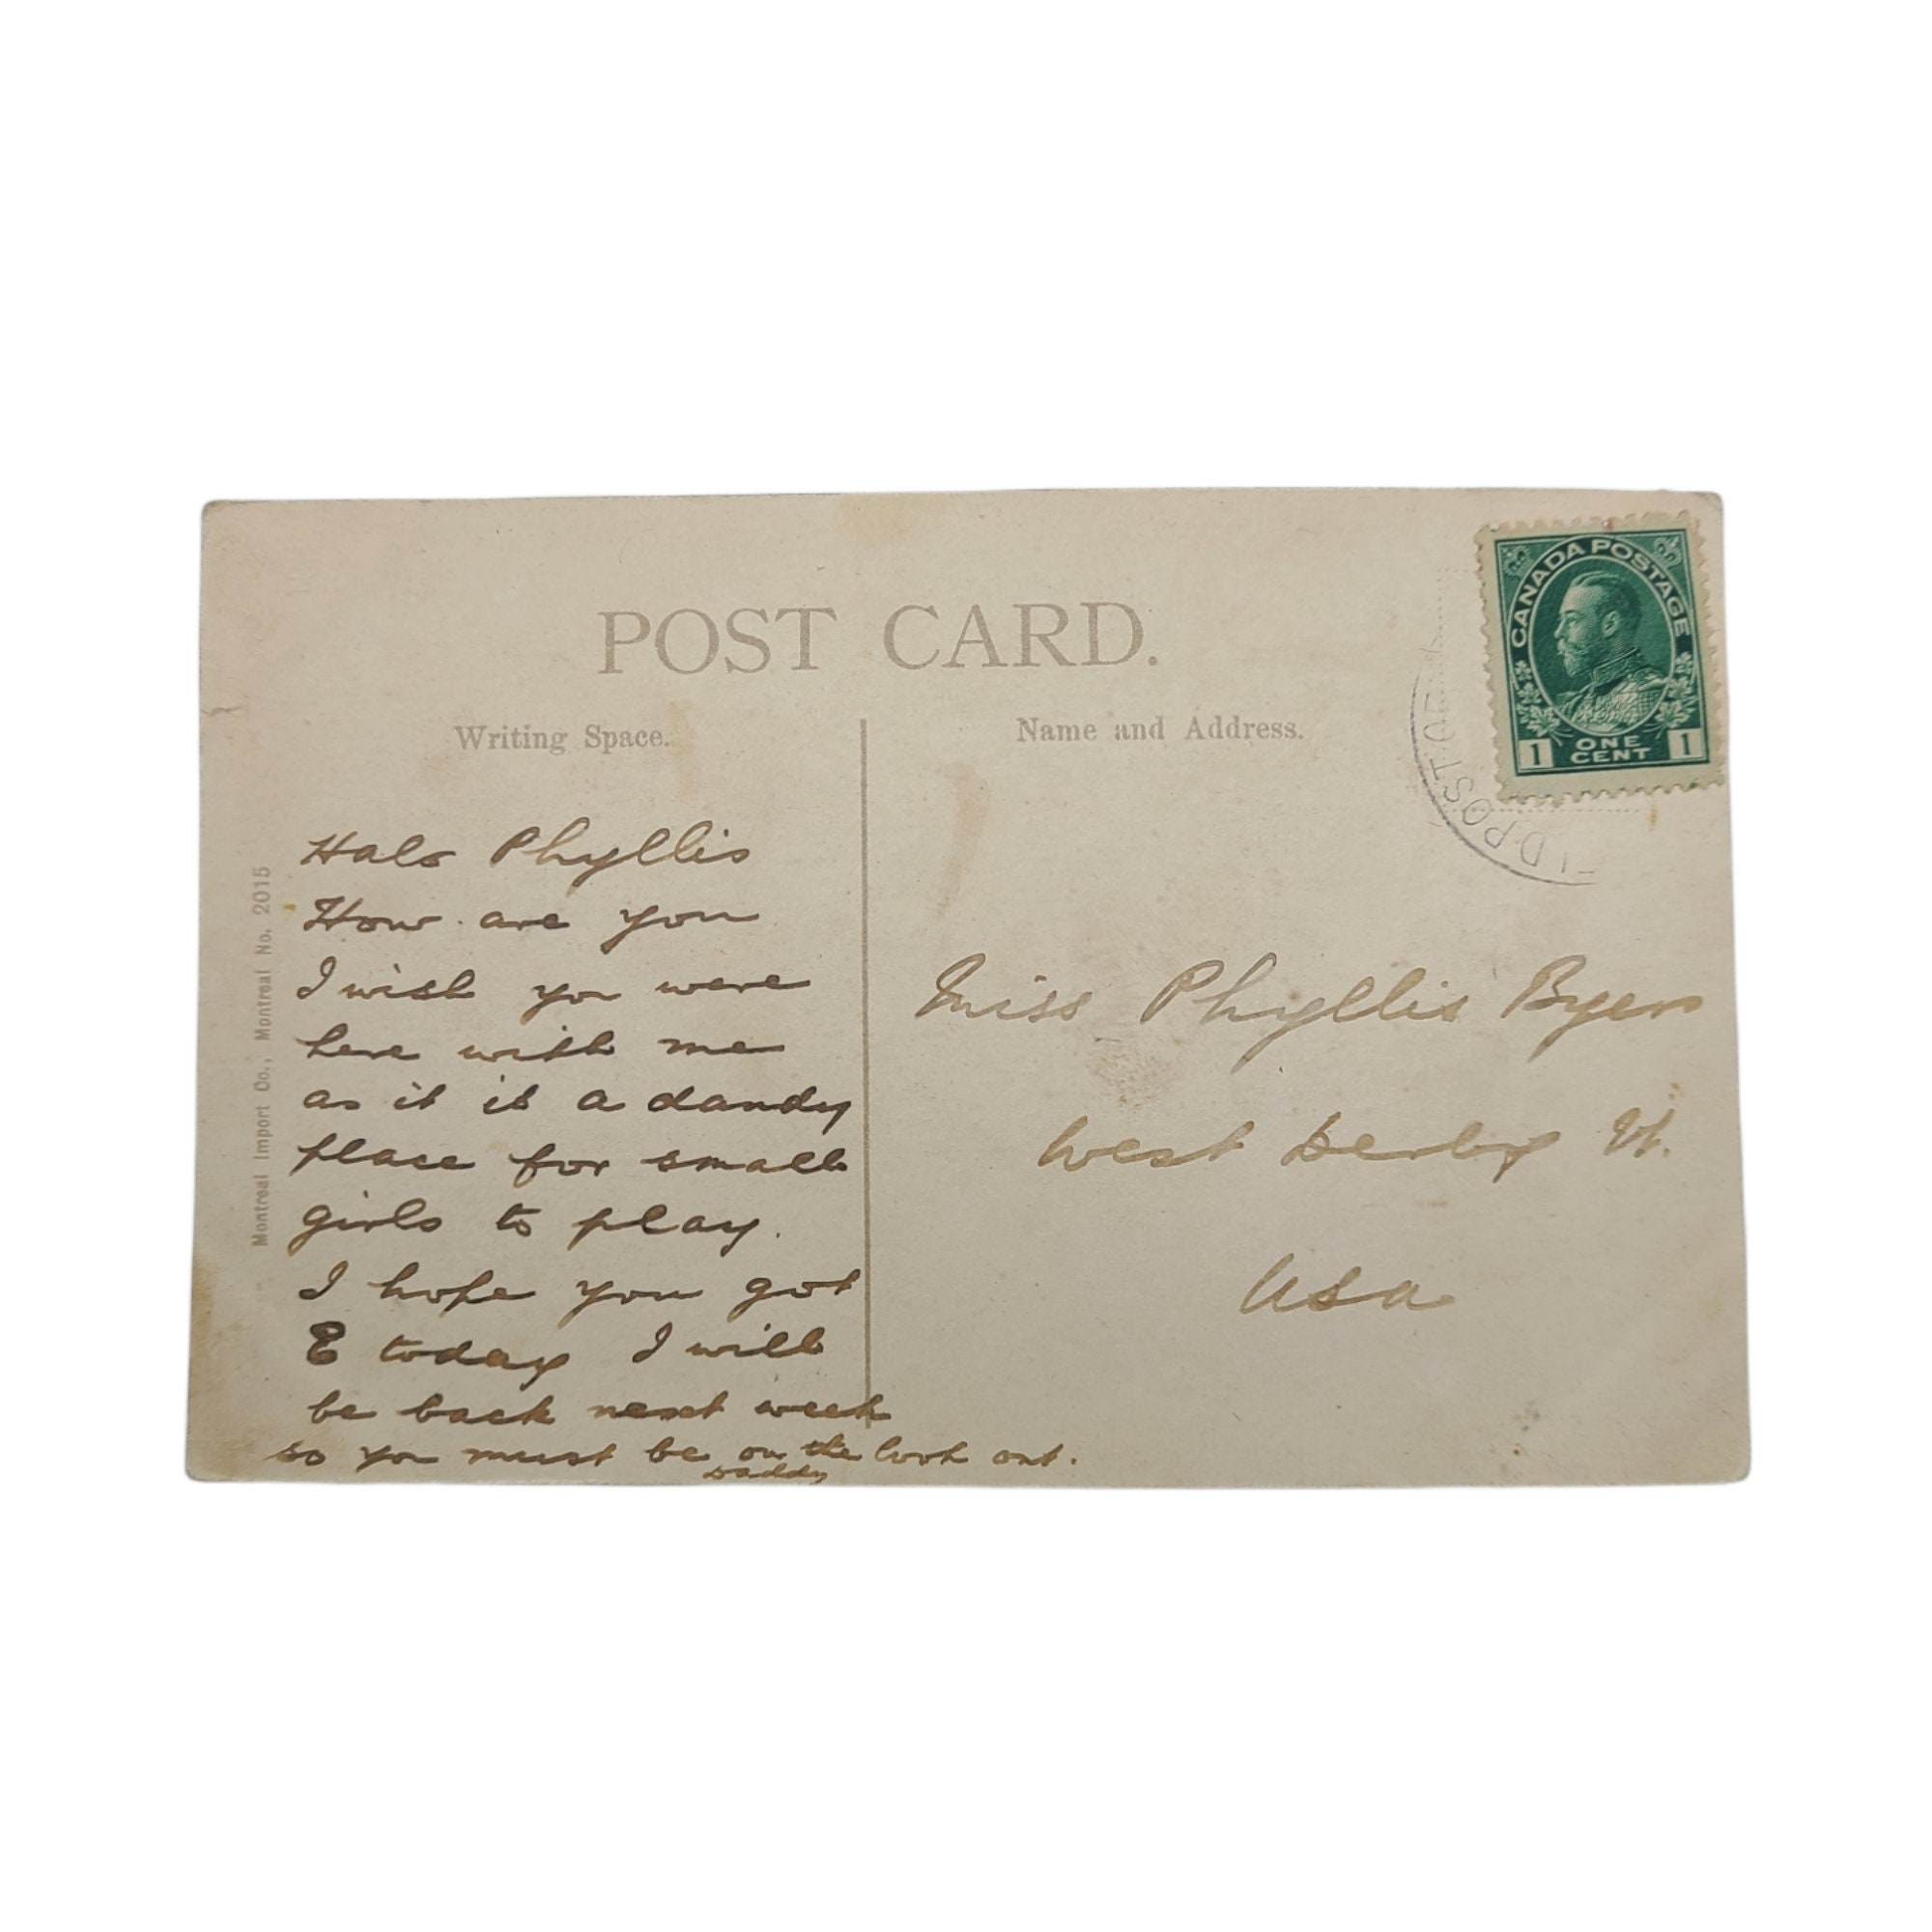 POST CARD.
CANADA POSTAGE
1 ONE CENT 1
Writing Space.
Name and Address.
Halo Phyllis
How are you
I wish you were
here with me
as it is a dandy
place for small
girls to play.
I hope you got
E today I will
be back next week
so you must be on the look out.
Daddy
Miss Phyllis Byers
West Derby Vt.
USA
Montreal Import Co., Montreal No. 2015